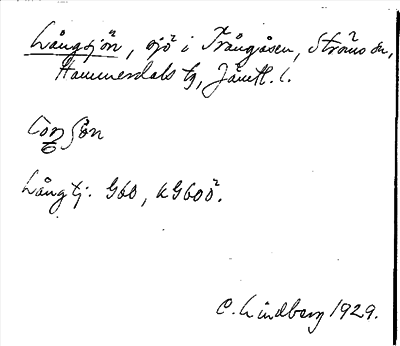 Långsjön, sjö i Trångåsen, Ströms sn,
Hammerdals tg, Jämtl. l.
Långtj. G60, kG600².
C. Lindberg 1929.